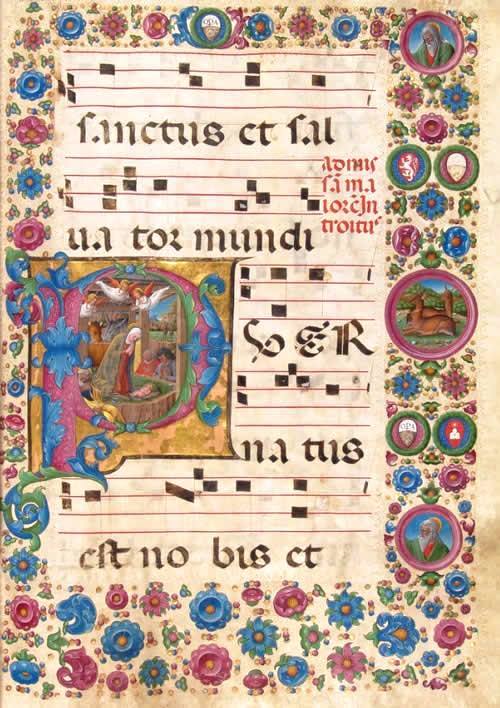 OPA
sanctus et sal
ad mis
sā ma
iorē In
troitus
ua tor mundi
P V ER
na tus
OPA
est no bis et